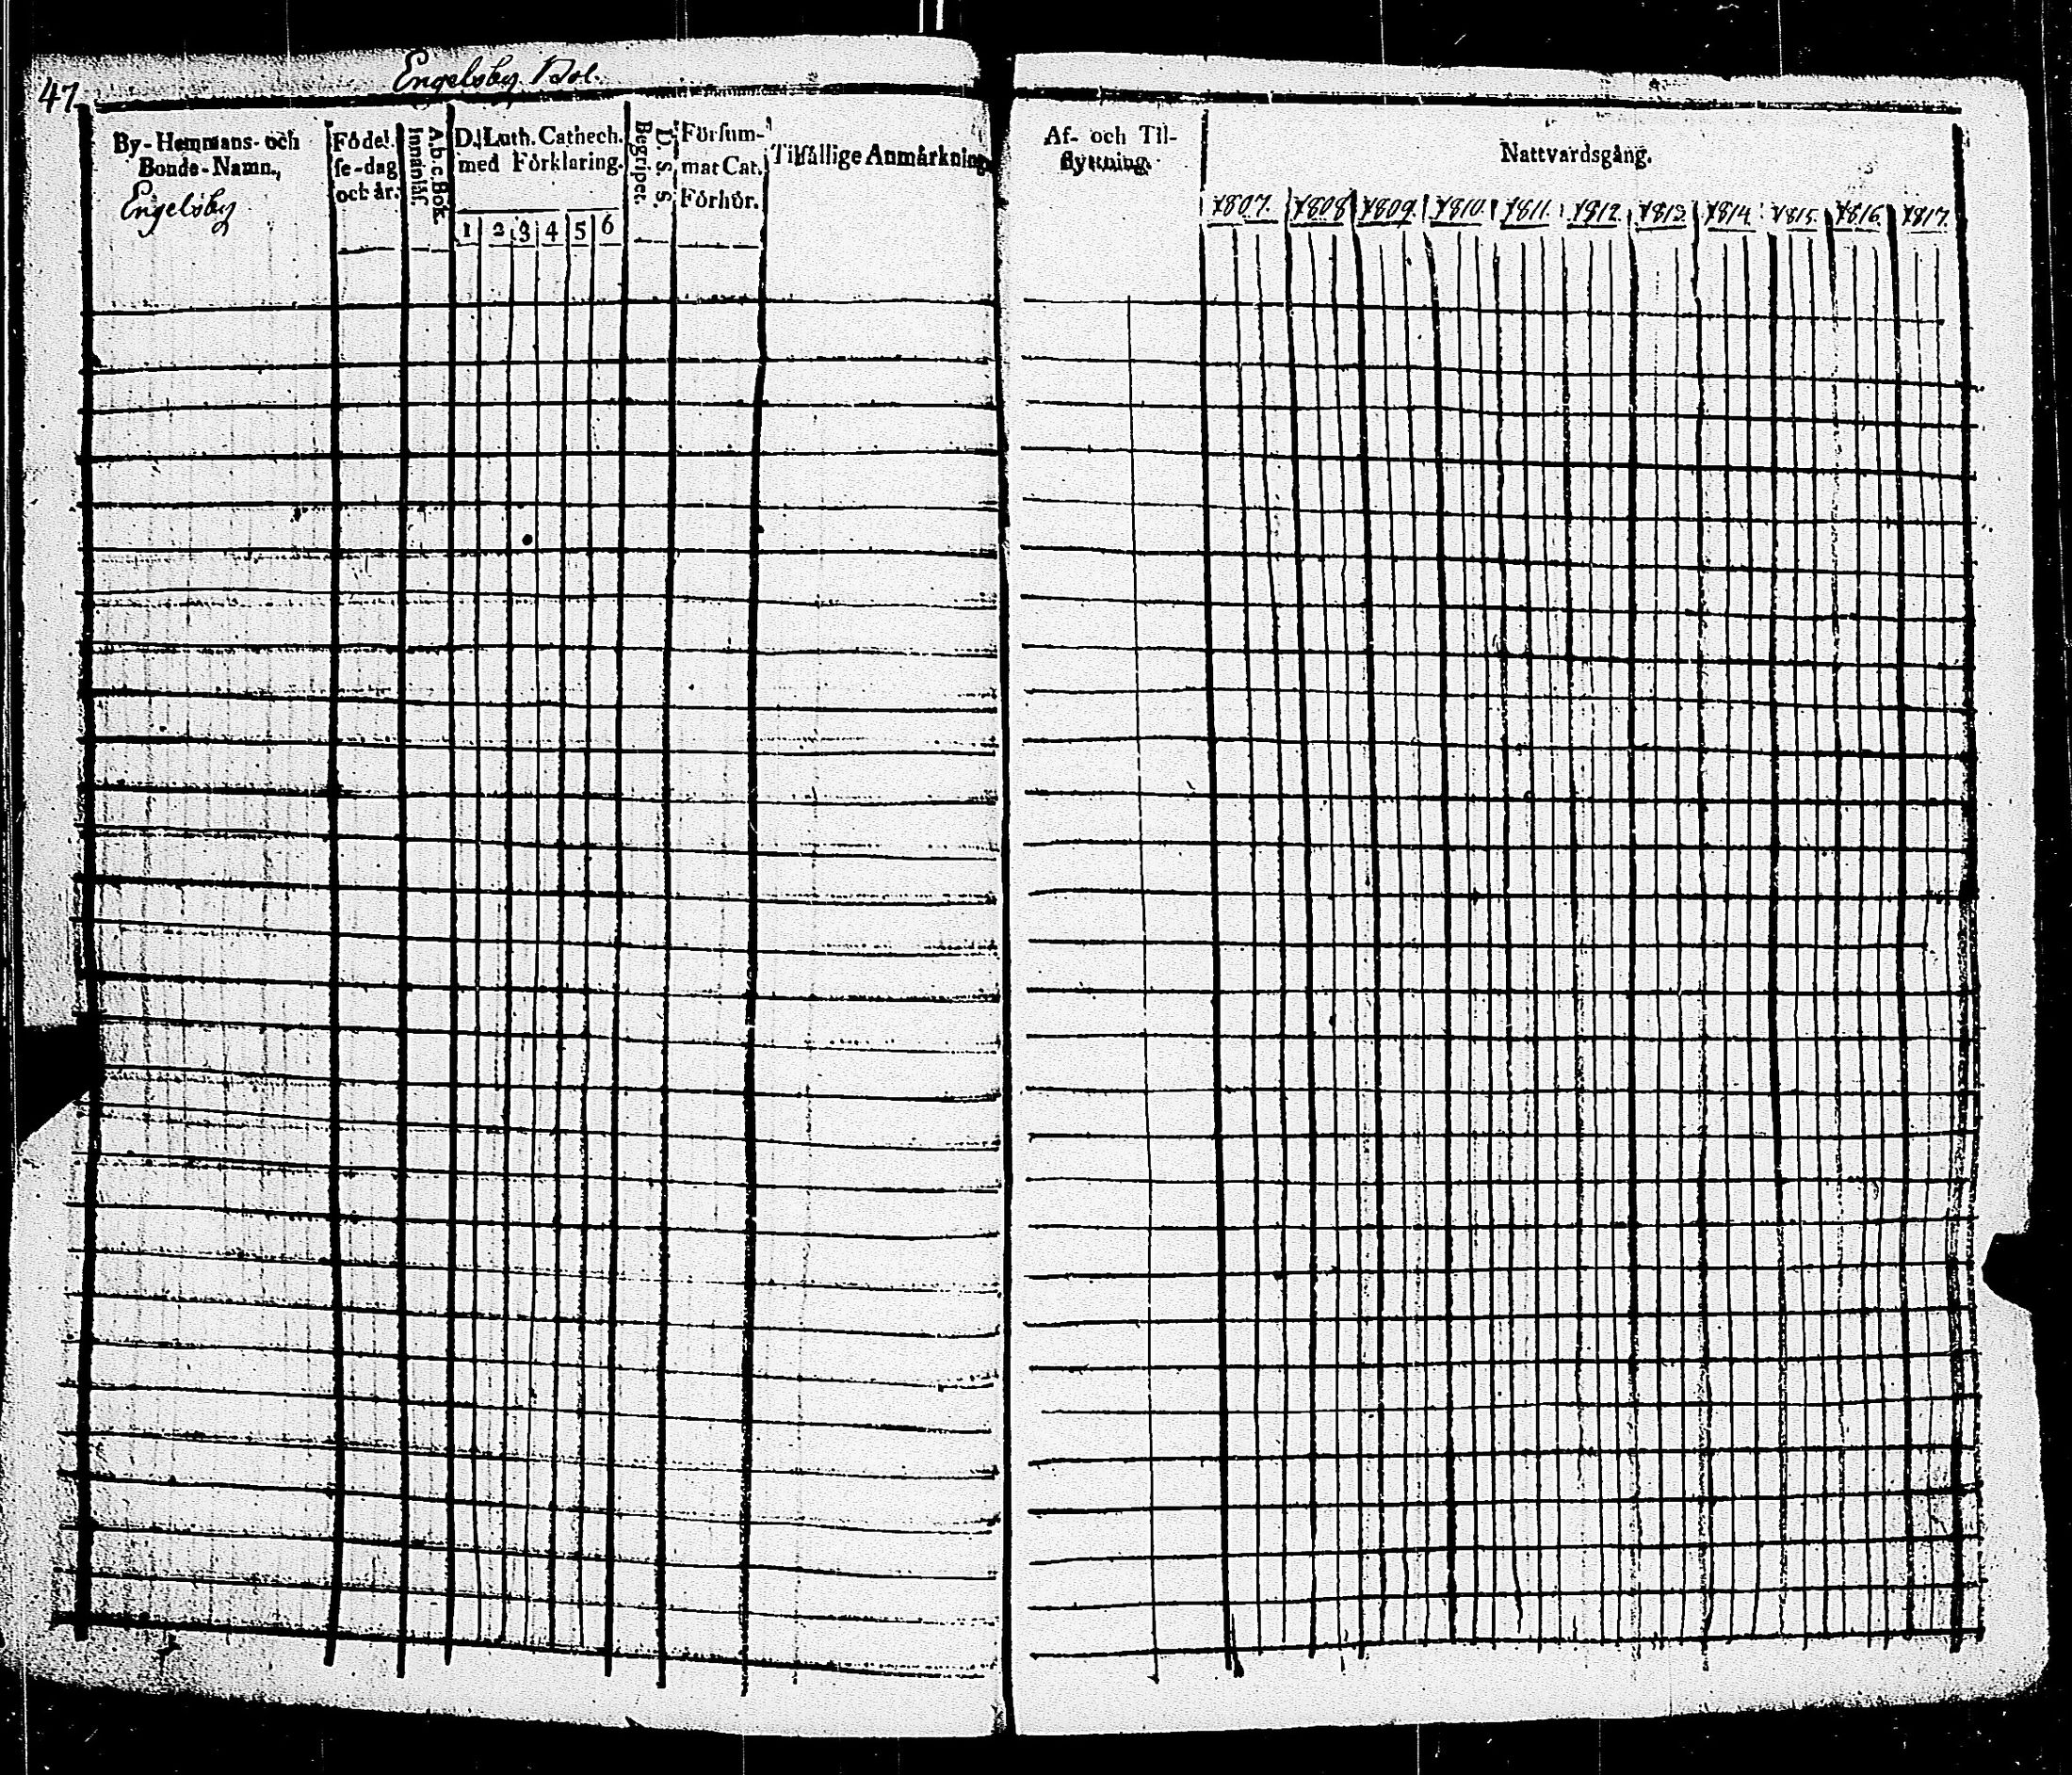 47
Engelsby Bol.
By-Hemmans- och
Bonde-Namn.
Engelsby
Födel-
se-dag
och år.
A.b.c.Bok.
Innanläs.
D. Luth. Cathech.
med Förklaring.
1 2 3 4 5 6
D. S. S.
Begriper.
Försum-
mat Cat.
Förhör.
Tilfällige Anmärkning.
Af- och Til-
flyttning.
Nattvardsgång.
1807. 1808 1809. 1810. 1811. 1812. 1813 1814 1815. 1816. 1817.